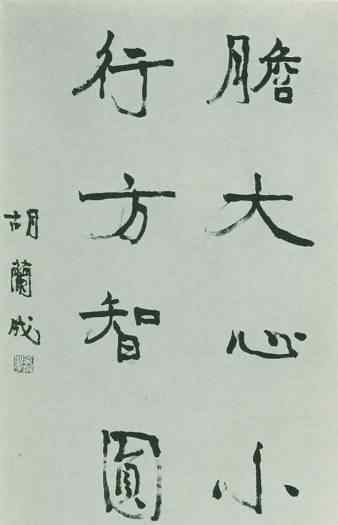 膽大心小
行方智圓
胡蘭成